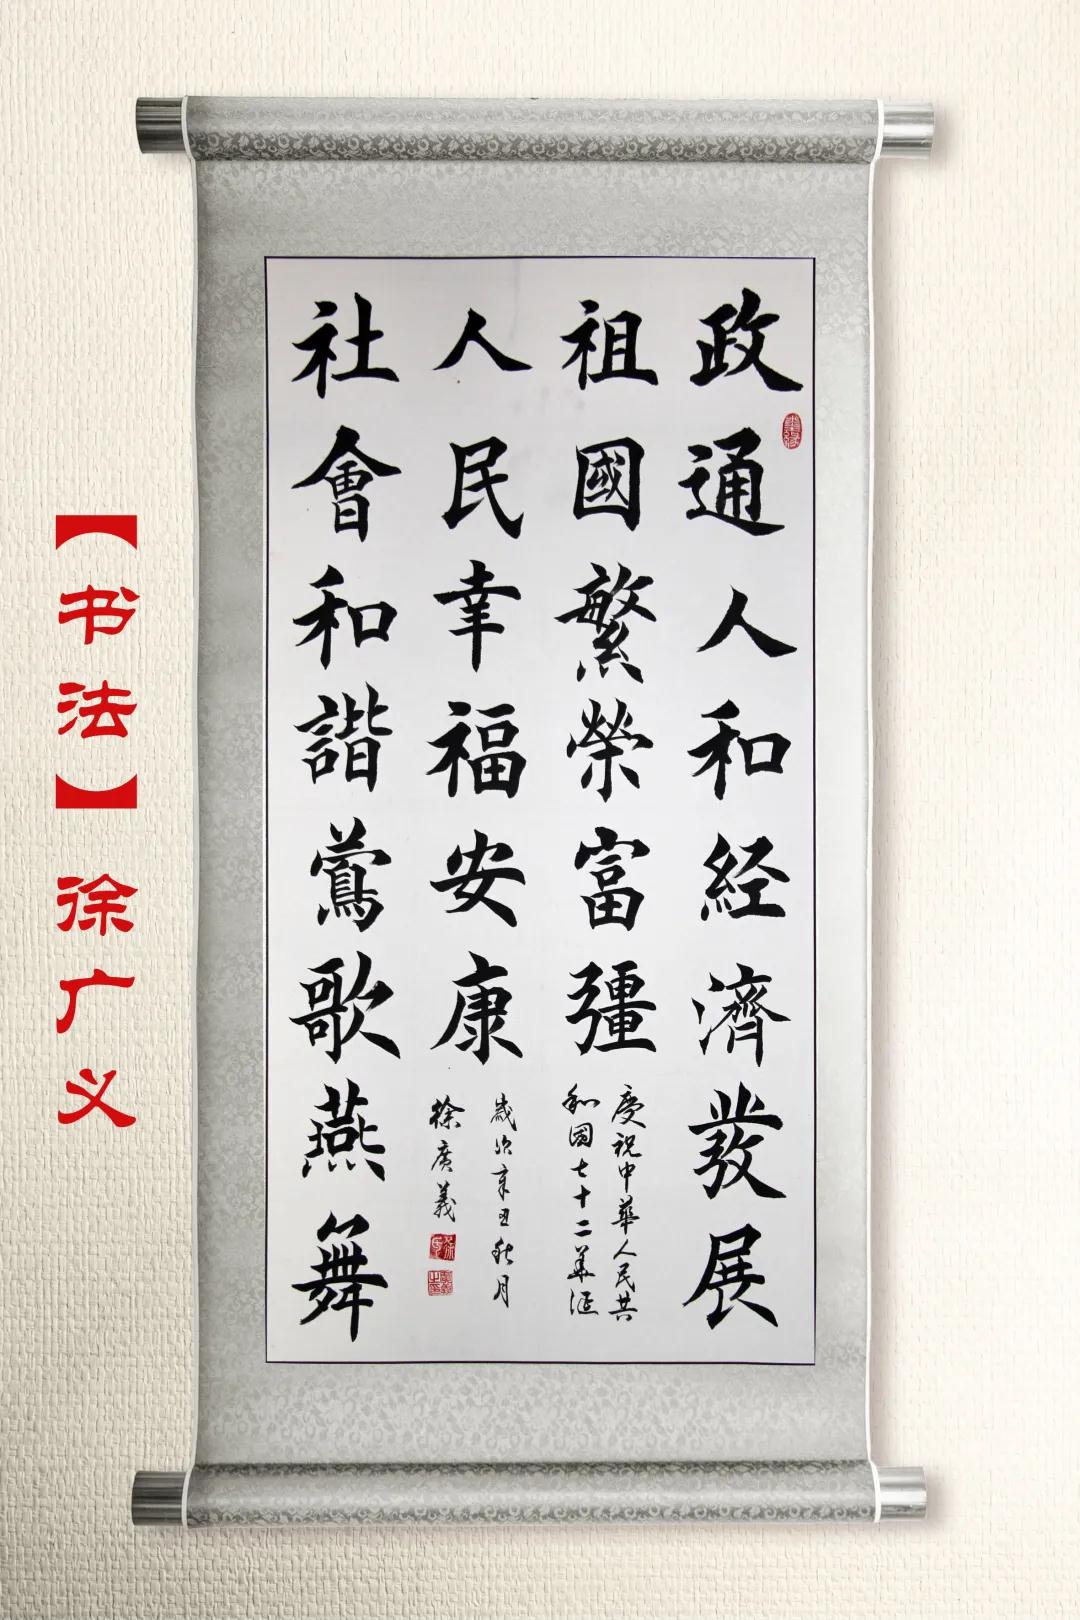 政通人和经濟發展
祖國繁榮富彊
人民幸福安康
社會和諧鶯歌燕舞
慶祝中華人民共
和國七十二華诞
歲次辛丑秋月
徐廣義
【书法】徐广义